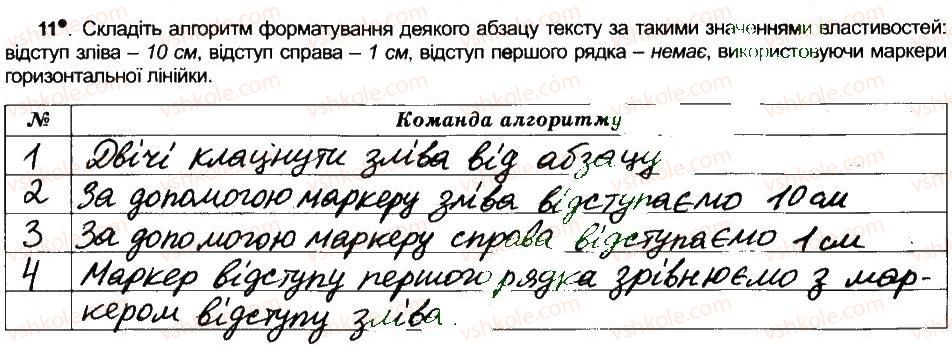 11°. Складіть алгоритм форматування деякого абзацу тексту за такими значеннями властивостей:
відступ зліва – 10 см, відступ справа – 1 см, відступ першого рядка – немає, використовуючи маркери
горизонтальної лінійки.
№ Команда алгоритму
1 Двічі клацінути зліва від абзацу
2 За допомогою маркеру зліва відступаємо 10 см
3 За допомогою маркеру справа відступаємо 1 см
4 Маркер відступу першого рядка зрівнюємо з мар-
кером відступу зліва.